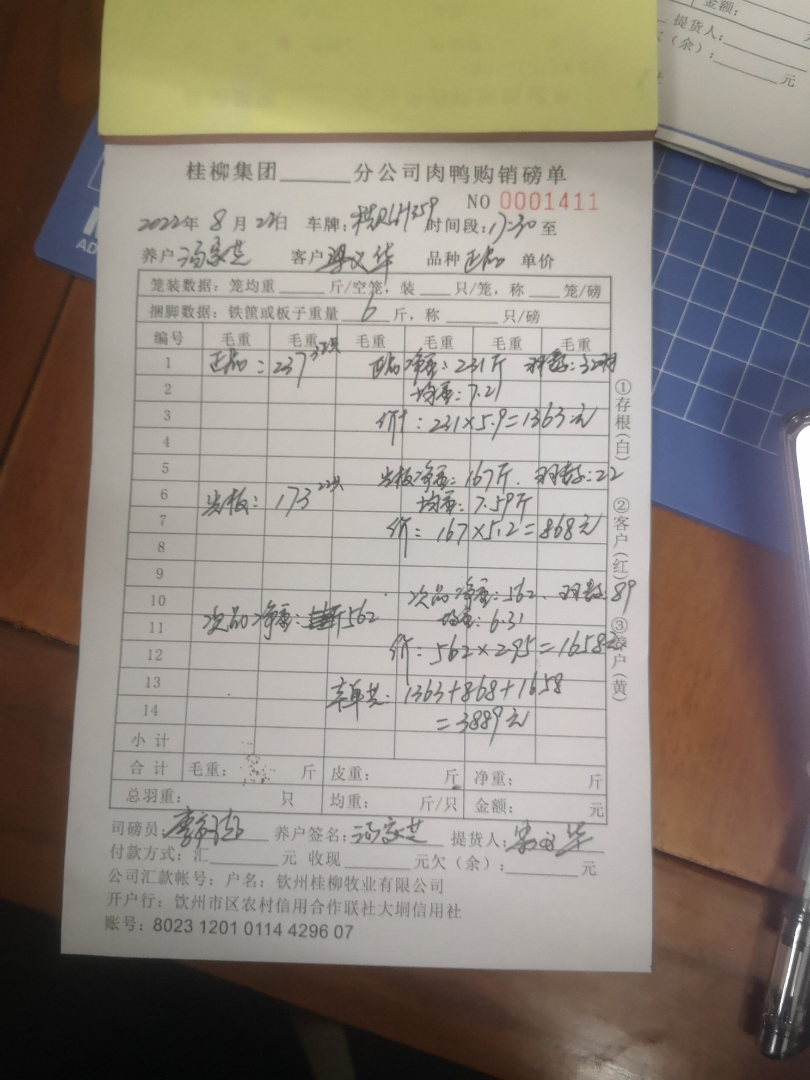 金额:
提货人:
(余):
元
桂柳集团 分公司肉鸭购销磅单
NO 0001411
2022年 8月 27日 车牌: 时间段: 17:30 至
养户 冯家芝 客户 梁义华 品种 正品 单价
笼装数据:笼均重 斤/空笼,装 只/笼,称 笼/磅
捆脚数据:铁筐或板子重量 6 斤,称 只/磅
编号 毛重 毛重 毛重 毛重 毛重 毛重
1 正品:237 32只 正品净重:231斤 羽数:32羽
2 均重:7.21
3 价:231×5.9=1363元
4
5 次板净重:167斤. 羽数:22
6 次板:173 22只 均重:7.59斤
7 价:167×5.2=868元
8
9
10 次品净重:562、羽数:89
11 次品净重: 562 均重:6.31
12 价:562×2.95=1658元
13 本单共:1363+868+1658
14 =3889元
小计
合计 毛重: 斤 皮重: 斤 净重: 斤
总羽重: 只 均重: 斤/只 金额: 元
司磅员: 养户签名:冯家芝 提货人:梁义华
付款方式:汇 元 收现 元欠(余): 元
公司汇款帐号:户名:钦州桂柳牧业有限公司
开户行:钦州市区农村信用合作联社大垌信用社
账号:8023 1201 0114 4296 07
①存根(白) ②客户(红) ③养户(黄)